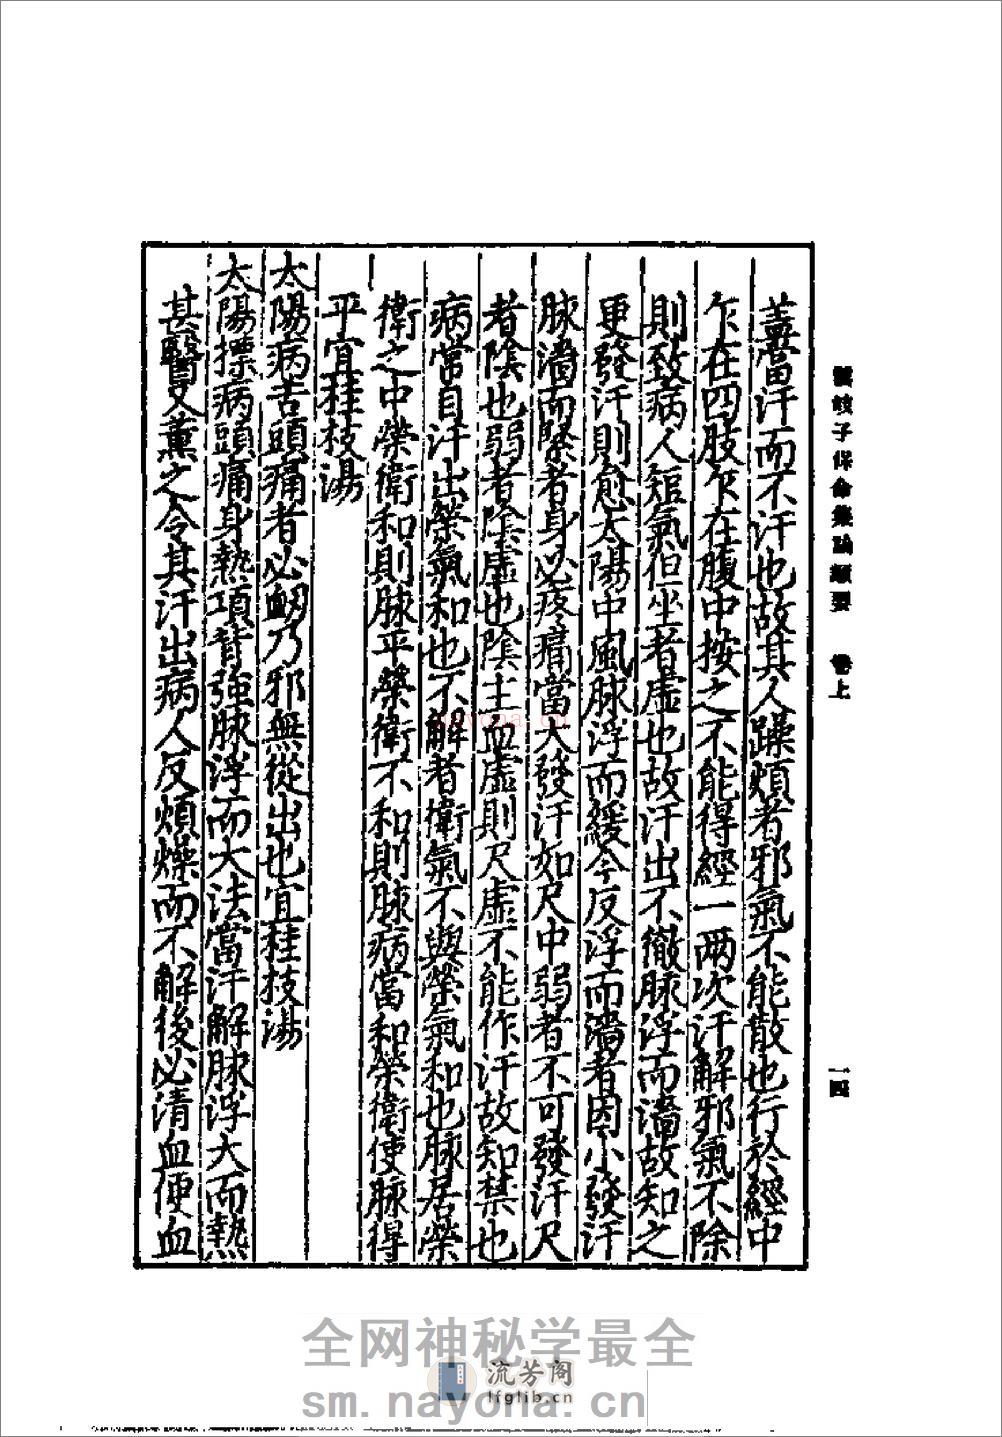 雲岐子保命集論類要 卷上
一四
蓋當汗而不汗也故其人躁煩者邪氣不能散也行於經中
乍在四肢乍在腹中按之不能得經一兩次汗解邪氣不除
則致病人短氣但坐者虛也故汗出不徹脉浮而濇故知之
更發汗則愈太陽中風脉浮而緩今反浮而濇者因小發汗
脉濇而緊者身必疼痛當大發汗如尺中弱者不可發汗尺
者陰也弱者陰虛也陰主血虛則尺虛不能作汗故知禁也
病常自汗出榮氣和也不解者衛氣不與榮氣和也脉居榮
衛之中榮衛和則脉平榮衛不和則脉病當和榮衛使脉得
平宜桂枝湯
太陽病苦頭痛者必衂乃邪無從出也宜桂枝湯
太陽摽病頭痛身熱項背強脉浮而大法當汗解脉浮大而熱
甚醫又薰之令其汗出病人反煩燥而不解後必清血便血
nayona.cn
全网神秘学最全
流芳阁
lfglib.cn
sm.nayona.cn